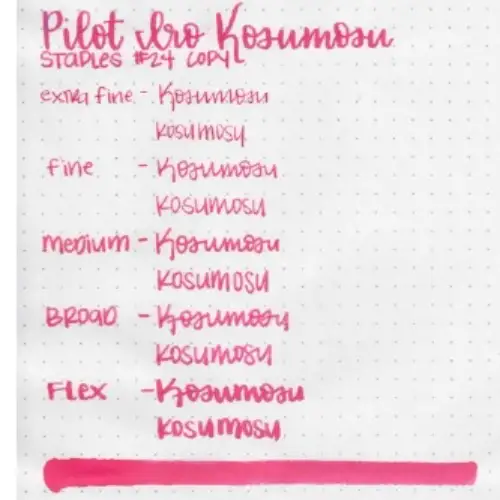 Pilot Iro Kosumosu
STAPLES #24 COPY
extra fine - Kosumosu
KOSUMOSU
fine - Kosumosu
KOSUMOSU
medium - Kosumosu
KOSUMOSU
BROAD - Kosumosu
KOSUMOSU
FLEX - Kosumosu
KOSUMOSU